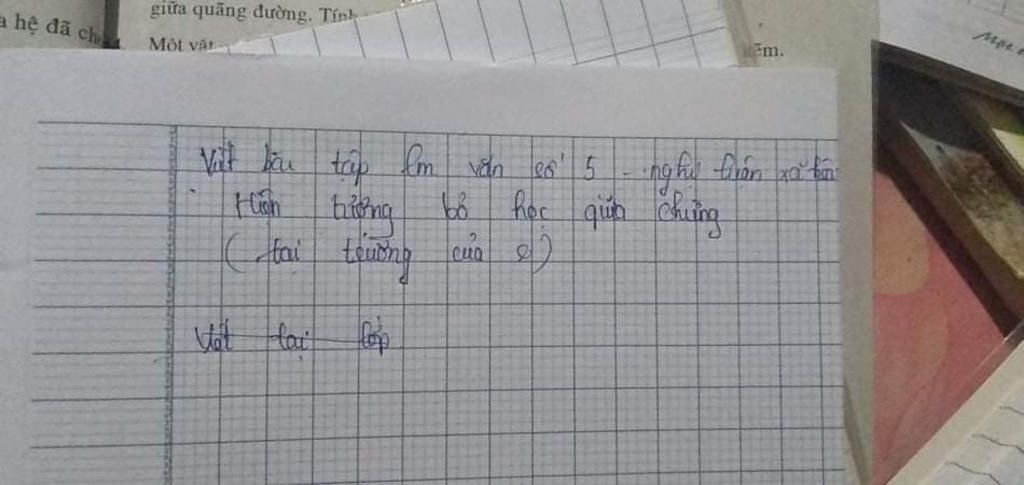 a hệ đã ch
giữa quãng đường. Tính
Một vật
Viết bài tập làm văn số 5 - nghị luận xã hội
Hiện tượng bỏ học giữa chừng
(tại trường của e)
Viết tại lớp